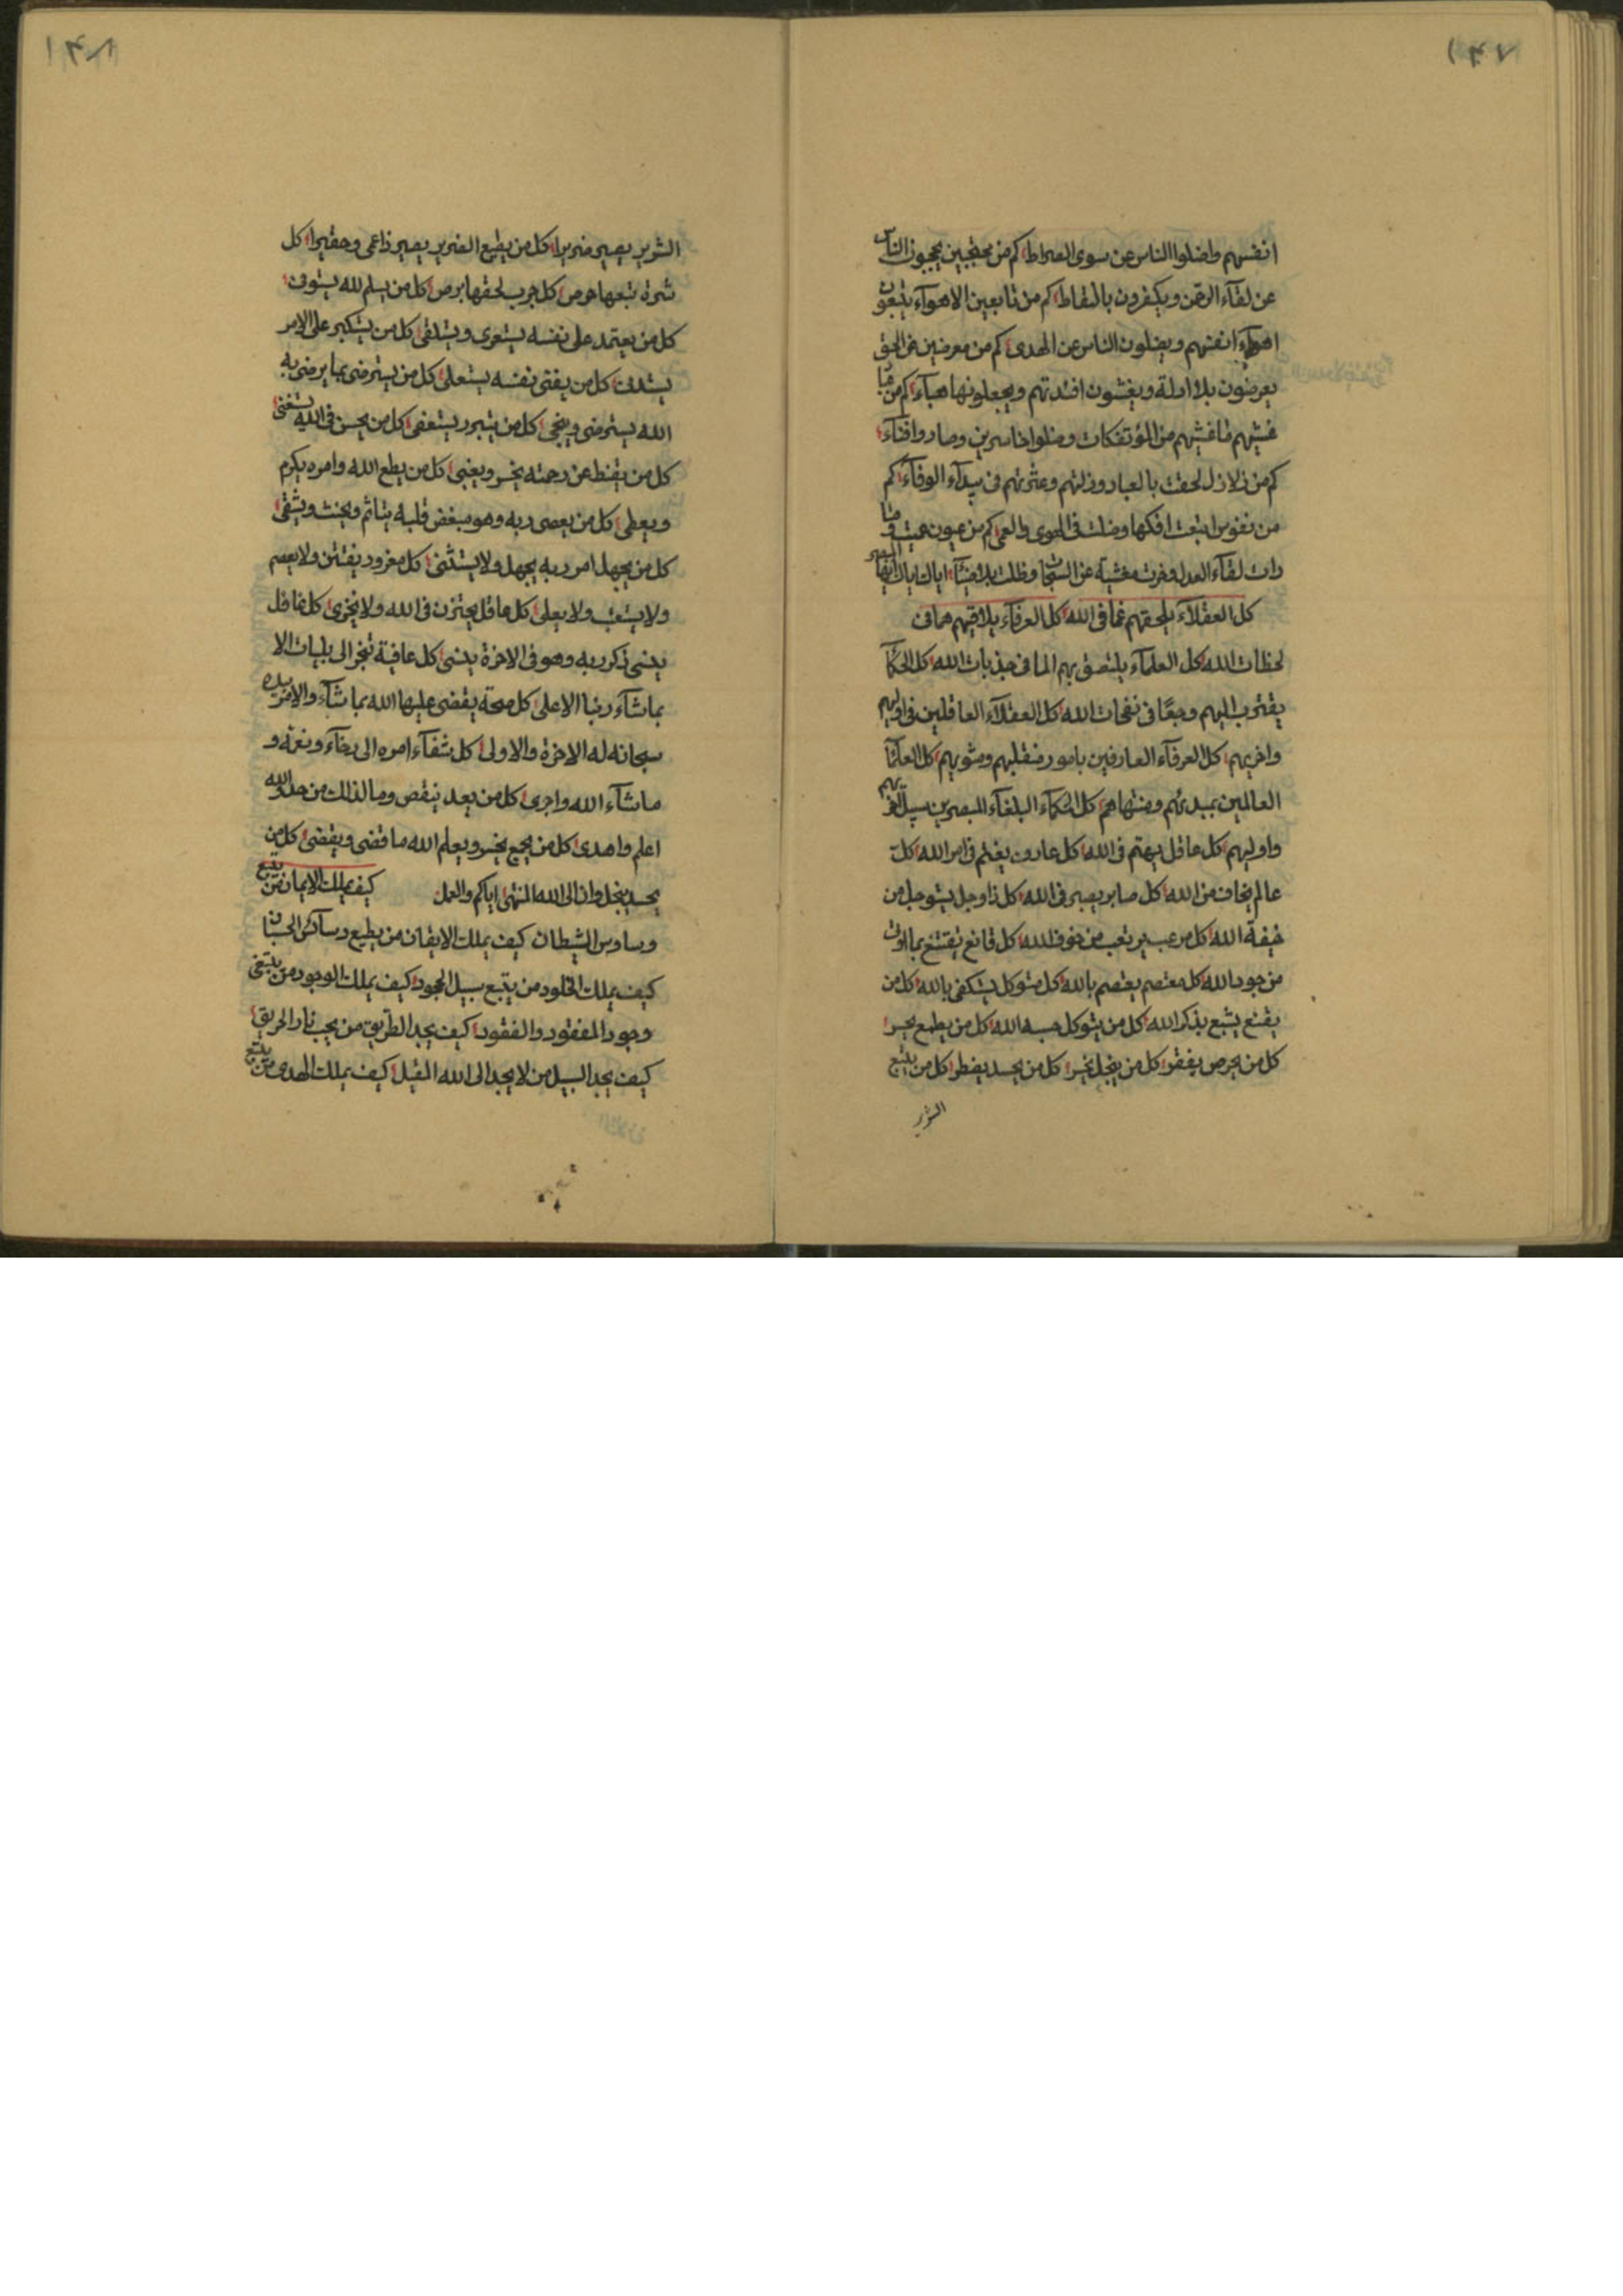 ١٤٧
انفسهم واضلوا الناس عن سوى الصراط كم من محتجبين يحجبون الناس
عن لقآء الرحمن ويكفرون بالنقاط كم من تابعين الاهوآء يتبعون
اهوآء انفسهم ويضلون الناس عن الهدى كم من معرضين عن الحق
يعرضون بلا ادلة ويغشون افئدتهم ويجعلونها هبآء كم من
غشيهم ما غشيهم من المؤتفكات وضلوا خاسرين وصاروا فنآء
كم من زلازل لحقت بالعباد وزلتهم وعثرتهم فى بيدآء الوفآء كم
من نفوس اتبعت افكها وضلت فى الهوى والعمى كم من عيون عميت و
رات لقآء العدل وخرت مغشية عن السبحات وظلت بلا
كل العقلآء يلحقهم غما فى الله كل العرفآء يلاقيهم هما فى
لحظات الله كل العلمآء يلتصق بهم الما فى جذبات الله كل الحكمآء
يقترب اليهم وجعًا فى نفحات الله كل العقلآء العاقلين فى اوليهم
واخريهم كل العرفآء العارفين بامور منقلبهم ومثويهم كل العلمآء
العالمين بمبدئهم ومنتهاهم كل الحكمآء البلغآء المبصرين سبيل اخريهم
واوليهم كل عاقل يهتم فى الله كل عارف يغتم فى امر الله كل
عالم يخاف من الله كل صابر يصبر فى الله كل ذا وجل يتوجل من
خيفة الله كل مرعب يرتعب من خوف الله كل قانع يقتنع بما اوت
من جود الله كل معتصم يعتصم بالله كل متوكل يتكفى بالله كل من
يقنع يشبع بذكر الله كل من يتوكل حسبه الله كل من يطمع يخسر
كل من يحرص يفقر كل من يبخل يخسر كل من يحسد يفطر كل من يتبع
الشرير
١٤٨
الشرير يصير ضريرا كل من يطيع الضرير يصير ذا عمى وحقيرا كل
شرة تبعها حرص كل جرب لحقها برص كل من يسلم لله يستوف
كل من يعتمد على نفسه يستعرى ويتدلى كل من يتكبر على الامر
يستدن كل من يفنى نفسه يستعلى كل من يسترضى بما يرضى به
الله يسترضى وينجى كل من يتبرر يستعفى كل من يحسن فى الله يستغنى
كل من يقنط عن رحمته يخسر ويغبى كل من يطع الله وامره يكرم
ويعطى كل من يعصى ربه وهو مبغض قلبه يتاثم ويخنث ويشقى
كل من يجهل امر ربه يجهل ولا يستثنى كل مغرور يفتتن ولا يعصم
ولا يستتب ولا يعلى كل عاقل يحترز فى الله ولا يخزى كل غافل
ينسى ذكر ربه وهو فى الاخرة ينسى كل عافية تنجر الى بليات الا
بماشآء ربنا الاعلى كل صحة يقضى عليها الله بماشآء والامر بيده
سبحانه له الاخرة والاولى كل شفآء امره الى رخآء ونعمة و
ماشآء الله واجرى كل من بعد ينقص وما لذلك من حد والله
اعلم واهدى كل من يجمع يخسر ويعلم الله ما قضى ويقضى كل من
يحسد ينجل وان الى الله المنتهى اياكم والعمل كيف يملك الايمان من يتبع
وساوس الشيطان كيف يملك الايقان من يطيع دسآئس الحسبان
كيف يملك الخلود من يتبع سبيل الجحود كيف يملك الوجود من يبتغى
وجود المفقود والفقود كيف يجد الطريق من يحب نار الحريق
كيف يجد السبيل من لا يجد الى الله المقيل كيف يملك الهدى من يتبع